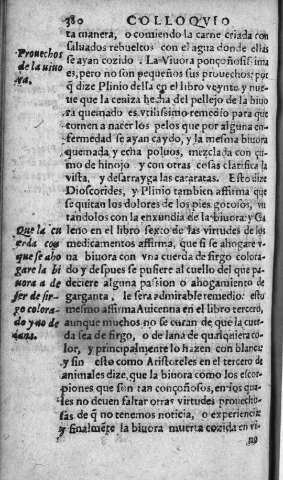 380 COLLOQVIO
ta manera, o comiendo la carne criada con
saluados rebueltos con el agua donde ellas
se ayan cozido. La Viuora ponçoñosissima
es, pero no son pequeños sus prouechos: por
q̃ dize Plinio della en el libro veynto y nue-
ue que la ceniza hecha del pellejo de la biuo
ra quemado es vtilissimo remedio para que
tornen a nacer los pelos que por alguna en-
fermedad se ayan caydo, y la mesma biuora
quemada y echa poluos, mezclada con çu-
mo de hinojo y con otras cosas clarifica la
vista, y desarrayga las cataratas. Esto dize
Dioscorides, y Plinio tambien affirma que
se quitan los dolores de los pies gotosos, vn
tandolos con la enxundia de la biuora: y Ga
leno en el libro sexto de las virtudes de los
medicamentos affirma, que si se ahogare v
na biuora con vna cuerda de sirgo colora-
do y despues se pusiere al cuello del que pa-
deciere alguna passion o ahogamiento de
garganta, le sera admirable remedio: esto
mesmo affirma Auicenna en el libro tercero,
aunque muchos no se curan de que la cuer-
da sea de sirgo, o de lana de qualquiera co-
lor, y principalmente lo hazen con blanca:
y sin esto como Aristoteles en el tercero de
animales dize, que la biuora como los escor-
piones que son tan conçoñosos, en los qua-
les no deuen faltar otras virtudes prouecho-
sas de q̃ no tenemos noticia, o experiencia
y finalmẽte la biuora muerta cozida en vi-
no
Prouechos
de la viuo
ra.
Que la cu
erda con
que se aho
gare la bi
uora a de
ser de sir-
go colora-
do y no de
lana.